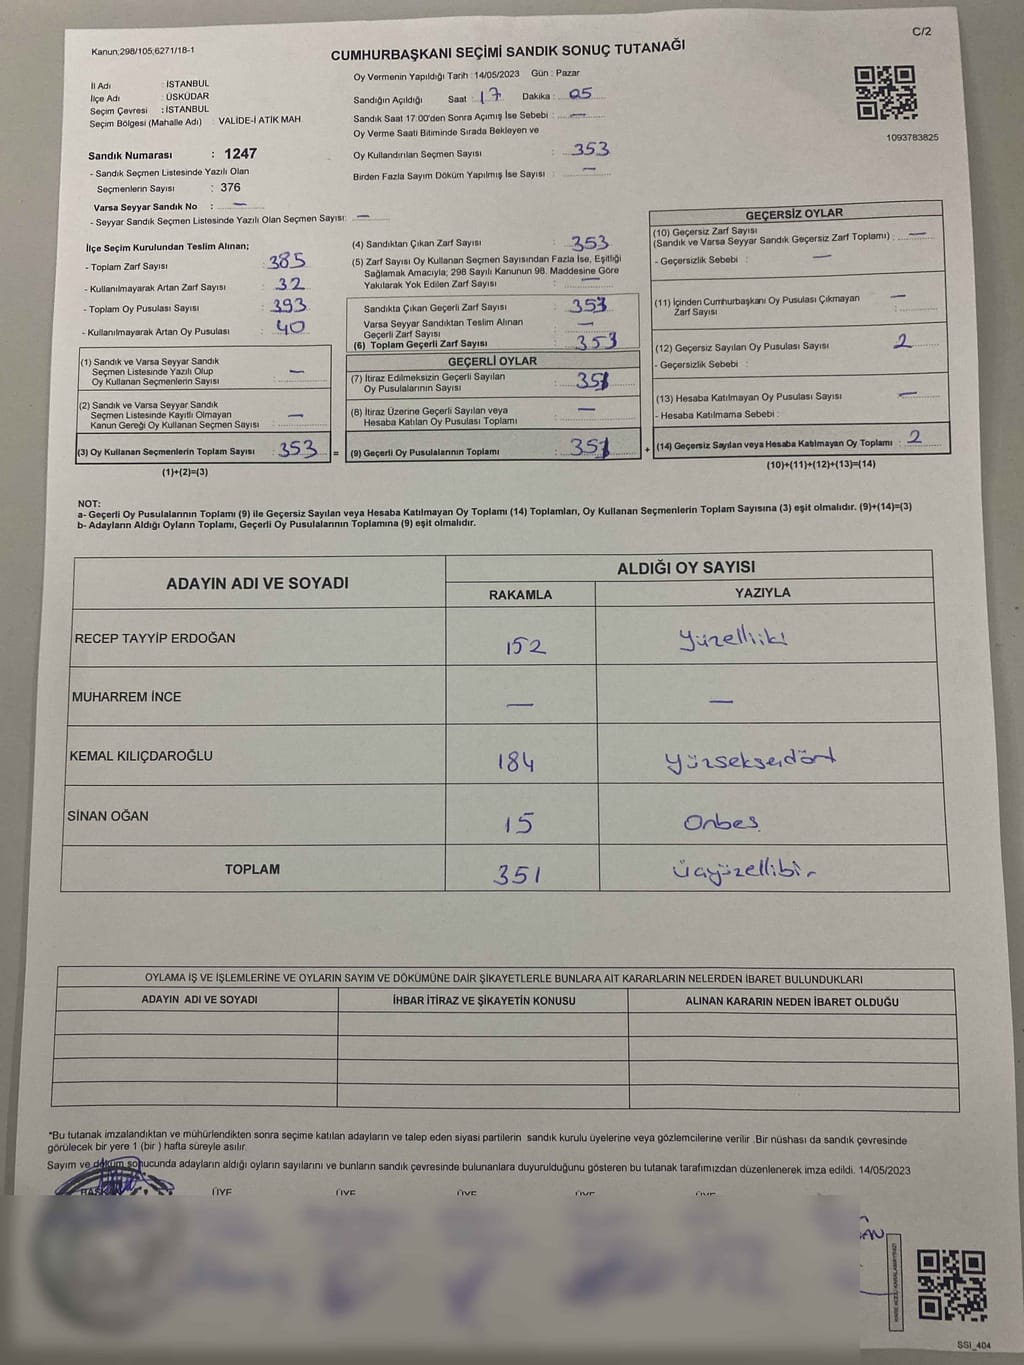 Kanun;298/105;6271/18-1
C/2
CUMHURBAŞKANI SEÇİMİ SANDIK SONUÇ TUTANAĞI
İl Adı : İSTANBUL
İlçe Adı : ÜSKÜDAR
Seçim Çevresi : İSTANBUL
Seçim Bölgesi (Mahalle Adı) : VALİDE-İ ATİK MAH.
Oy Vermenin Yapıldığı Tarih : 14/05/2023 Gün : Pazar
Sandığın Açıldığı Saat : 17 Dakika : 05
Sandık Saat 17:00'den Sonra Açımış İse Sebebi : —
Oy Verme Saati Bitiminde Sırada Bekleyen ve
Oy Kullandırılan Seçmen Sayısı : 353
Birden Fazla Sayım Döküm Yapılmış İse Sayısı : —
1093783825
Sandık Numarası : 1247
- Sandık Seçmen Listesinde Yazılı Olan
Seçmenlerin Sayısı : 376
Varsa Seyyar Sandık No : —
- Seyyar Sandık Seçmen Listesinde Yazılı Olan Seçmen Sayısı: —
İlçe Seçim Kurulundan Teslim Alınan;
- Toplam Zarf Sayısı : 385
- Kullanılmayarak Artan Zarf Sayısı : 32
- Toplam Oy Pusulası Sayısı : 393
- Kullanılmayarak Artan Oy Pusulası : 40
(1) Sandık ve Varsa Seyyar Sandık
Seçmen Listesinde Yazılı Olup
Oy Kullanan Seçmenlerin Sayısı : —
(2) Sandık ve Varsa Seyyar Sandık
Seçmen Listesinde Kayıtlı Olmayan
Kanun Gereği Oy Kullanan Seçmen Sayısı : —
(3) Oy Kullanan Seçmenlerin Toplam Sayısı : 353
(1)+(2)=(3)
=
(4) Sandıktan Çıkan Zarf Sayısı : 353
(5) Zarf Sayısı Oy Kullanan Seçmen Sayısından Fazla İse, Eşitliği
Sağlamak Amacıyla; 298 Sayılı Kanunun 98. Maddesine Göre
Yakılarak Yok Edilen Zarf Sayısı : —
Sandıkta Çıkan Geçerli Zarf Sayısı : 353
Varsa Seyyar Sandıktan Teslim Alınan
Geçerli Zarf Sayısı : —
(6) Toplam Geçerli Zarf Sayısı : 353
GEÇERLİ OYLAR
(7) İtiraz Edilmeksizin Geçerli Sayılan
Oy Pusulalarının Sayısı : 351
(8) İtiraz Üzerine Geçerli Sayılan veya
Hesaba Katılan Oy Pusulası Toplamı : —
(9) Geçerli Oy Pusulalarının Toplamı : 351
+
GEÇERSİZ OYLAR
(10) Geçersiz Zarf Sayısı
(Sandık ve Varsa Seyyar Sandık Geçersiz Zarf Toplamı) : —
- Geçersizlik Sebebi : —
(11) İçinden Cumhurbaşkanı Oy Pusulası Çıkmayan
Zarf Sayısı : —
(12) Geçersiz Sayılan Oy Pusulası Sayısı : 2
- Geçersizlik Sebebi :
(13) Hesaba Katılmayan Oy Pusulası Sayısı : —
- Hesaba Katılmama Sebebi :
(14) Geçersiz Sayılan veya Hesaba Katılmayan Oy Toplamı : 2
(10)+(11)+(12)+(13)=(14)
NOT:
a- Geçerli Oy Pusulalarının Toplamı (9) ile Geçersiz Sayılan veya Hesaba Katılmayan Oy Toplamı (14) Toplamları, Oy Kullanan Seçmenlerin Toplam Sayısına (3) eşit olmalıdır. (9)+(14)=(3)
b- Adayların Aldığı Oyların Toplamı, Geçerli Oy Pusulalarının Toplamına (9) eşit olmalıdır.
ADAYIN ADI VE SOYADI ALDIĞI OY SAYISI
RAKAMLA YAZIYLA
RECEP TAYYİP ERDOĞAN 152 Yüzelliiki
MUHARREM İNCE — —
KEMAL KILIÇDAROĞLU 184 Yüzseksendört
SİNAN OĞAN 15 Onbeş
TOPLAM 351 Üçyüzellibir
OYLAMA İŞ VE İŞLEMLERİNE VE OYLARIN SAYIM VE DÖKÜMÜNE DAİR ŞİKAYETLERLE BUNLARA AİT KARARLARIN NELERDEN İBARET BULUNDUKLARI
ADAYIN ADI VE SOYADI İHBAR İTİRAZ VE ŞİKAYETİN KONUSU ALINAN KARARIN NEDEN İBARET OLDUĞU
*Bu tutanak imzalandıktan ve mühürlendikten sonra seçime katılan adayların ve talep eden siyasi partilerin sandık kurulu üyelerine veya gözlemcilerine verilir .Bir nüshası da sandık çevresinde
görülecek bir yere 1 (bir ) hafta süreyle asılır.
Sayım ve döküm sonucunda adayların aldığı oyların sayılarını ve bunların sandık çevresinde bulunanlara duyurulduğunu gösteren bu tutanak tarafımızdan düzenlenerek imza edildi. 14/05/2023
BAŞKAN ÜYE ÜYE ÜYE ÜYE ÜYE
SSI_404